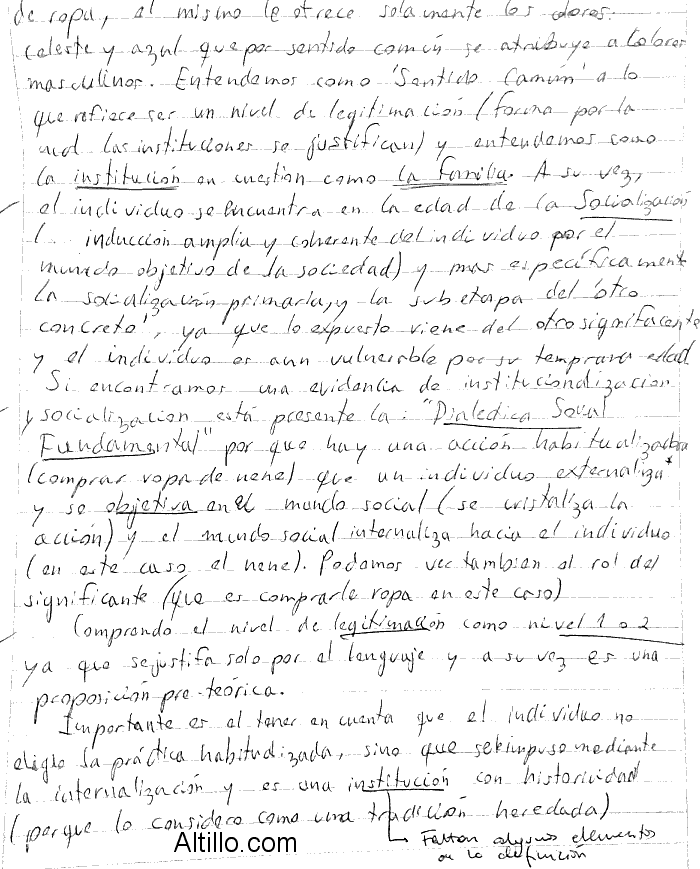 de ropa, el mismo le ofrece solamente los colores
celeste y azul que por sentido común se atribuye a colores
masculinos. Entendemos como 'Sentido Común' a lo
que refiece ser un nivel de legitimación (forma por la
cual las instituciones se justifican) y entendemos como
la institución en cuestion como la familia. A su vez,
el individuo se encuentra en la edad de la Socialización
( inducción amplia y coherente del individuo por el
mundo objetivo de la sociedad) y mas específicament
la socialización primaria, y la subetapa del 'otro
concreto', ya que lo expuesto viene del otro significante
y el individuo es aun vulnerable por su temprana edad
Si encontramos una evidencia de institucionalización
y socialización está presente la: "Dialedica Social
Fundamental" por que hay una acción habitualizadora
(comprar ropa de nene) que un individuo externaliza*
y se objetiva en el mundo social (se cristaliza la
acción) y el mundo social internaliza hacia el individuo
(en este caso el nene). Podemos ver tambien al rol del
significante (que es comprarle ropa en este caso)
Comprendo el nivel de legitimación como nivel 1 o 2
ya que se justifa solo por el lenguaje y a su vez es una
proposición pre-teórica.
Importante es el tener en cuenta que el individuo no
eligio la práctica habitualizada, sino que se le impuso mediante
la internalización y es una institución con historividad
(porque lo considero como una tradición heredada)
Faltan algunos elementos
en la definición
Altillo.com